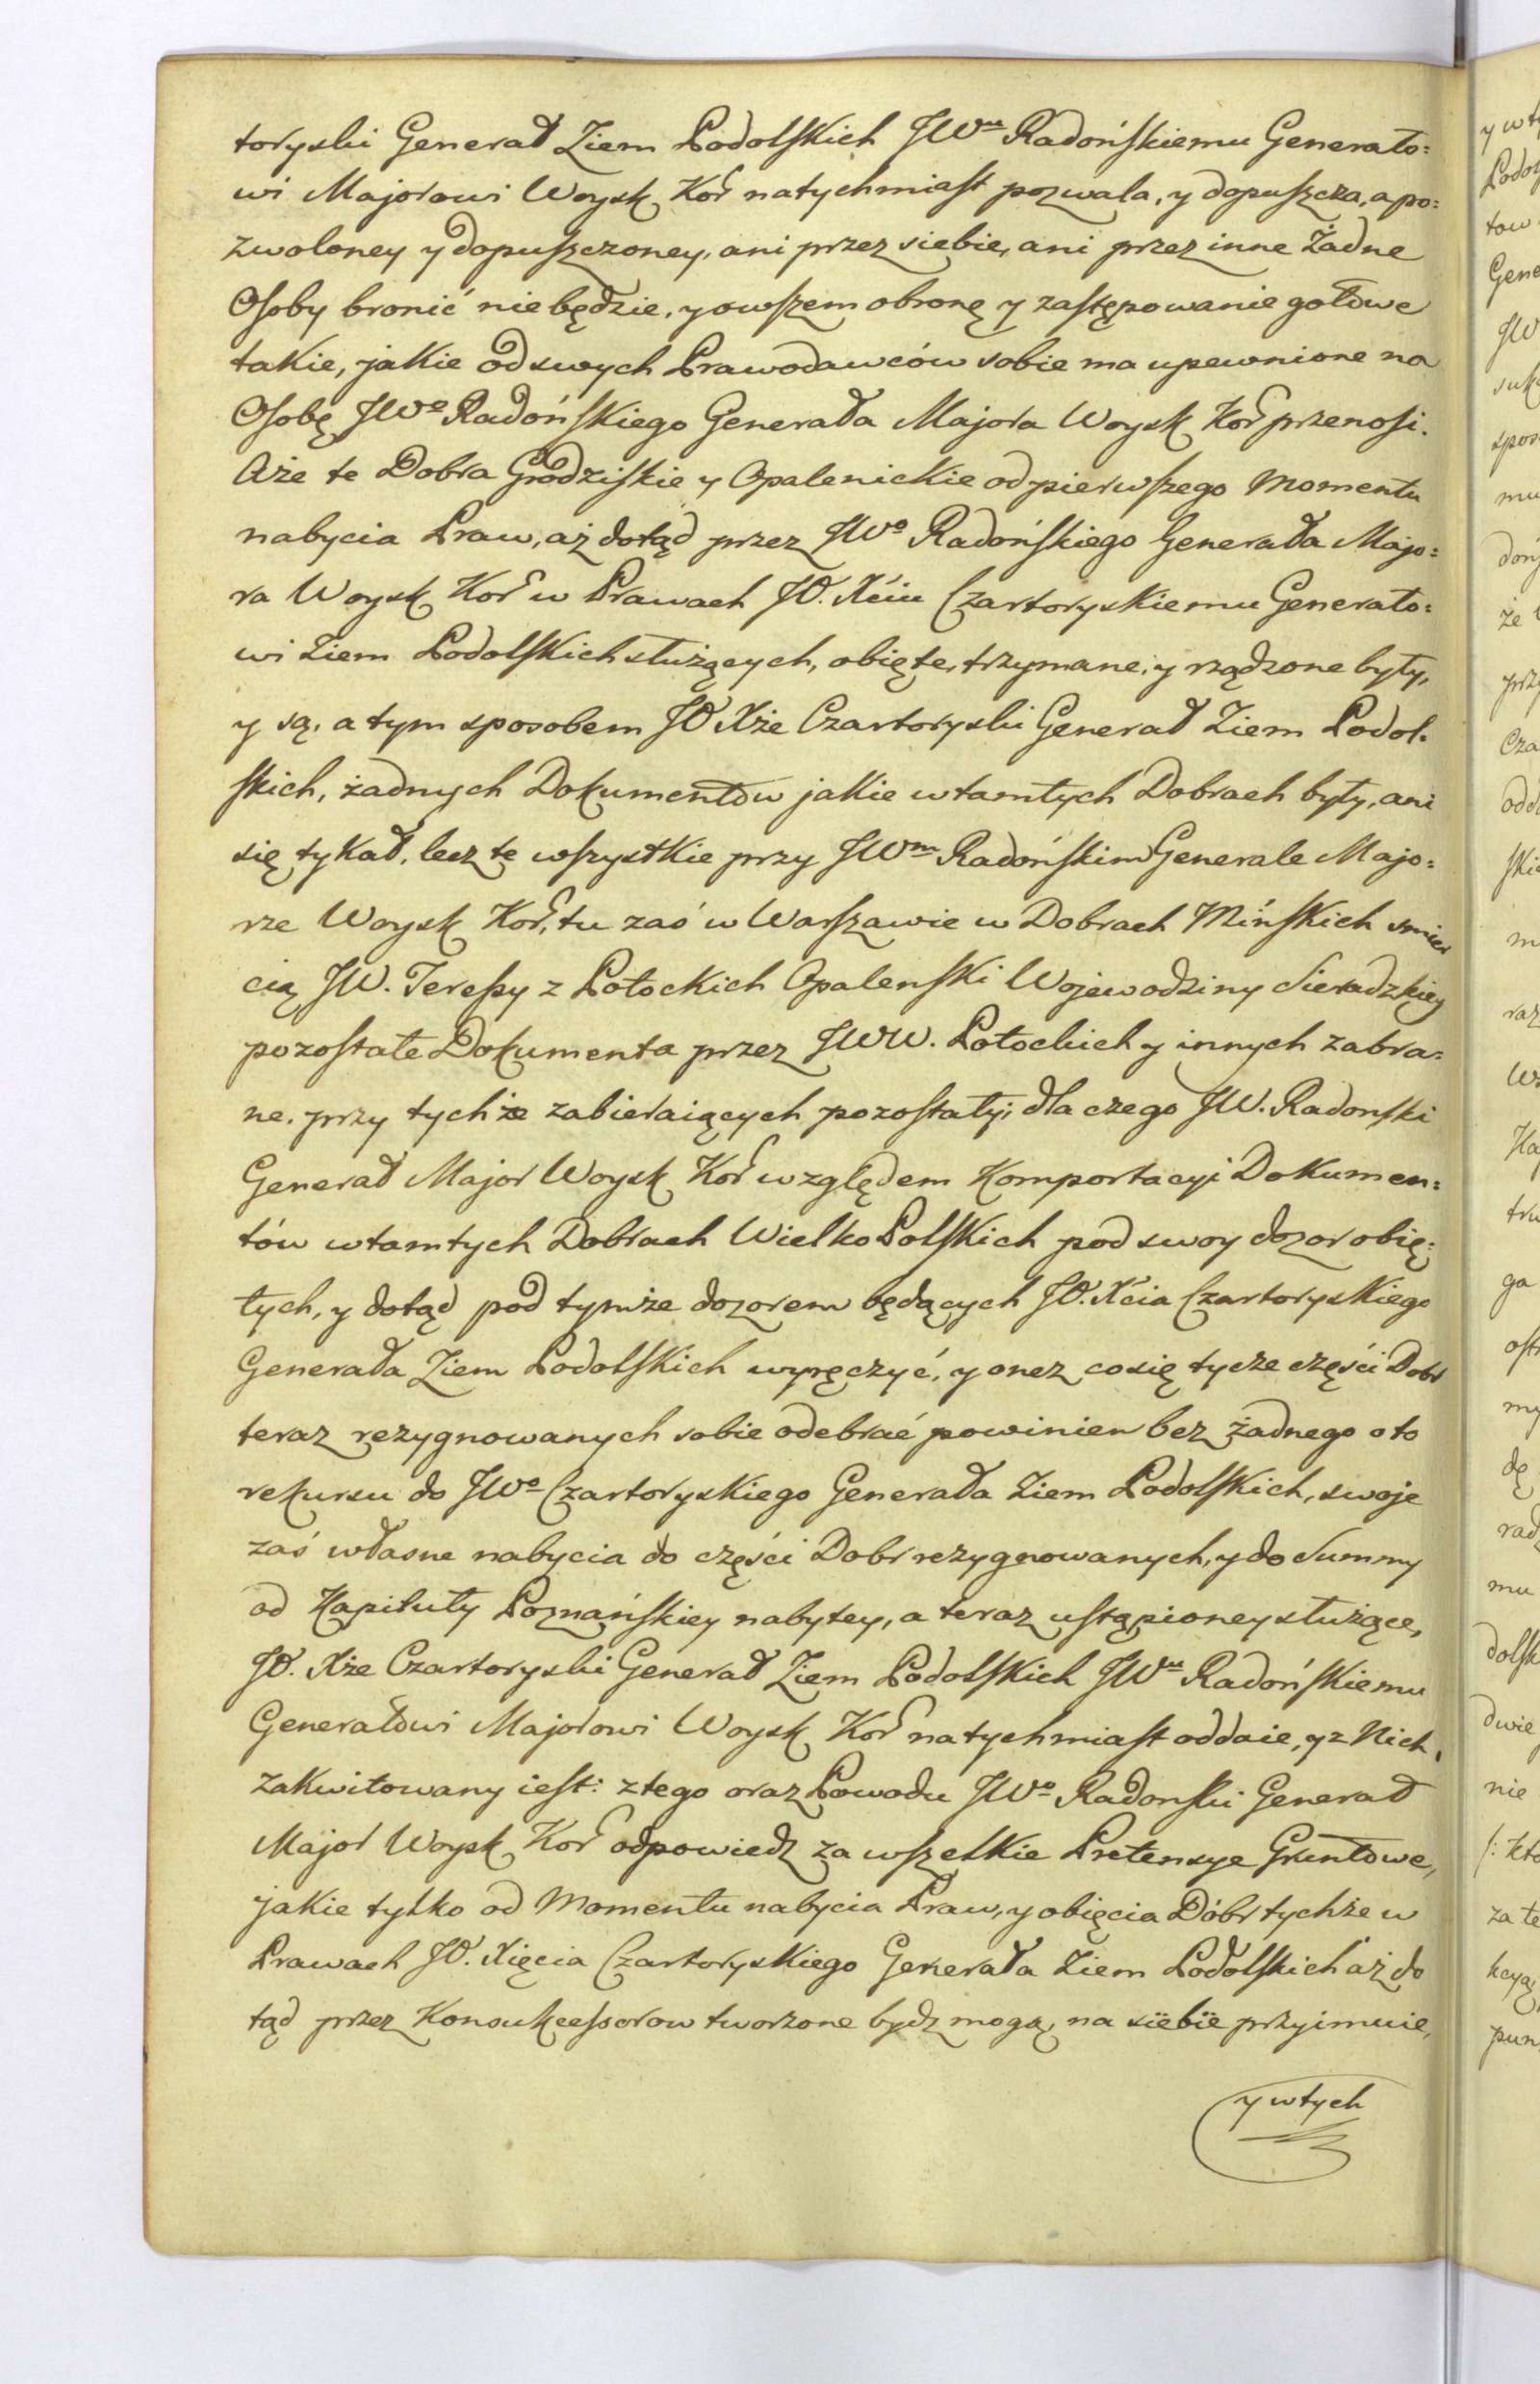 toryski Generał Ziem Podolskich JWu Radońskiemu Generało=
wi Majorowi Woysk Kor natychmiast pozwala, y dopuszcza, a po=
zwoloney y dopuszczoney, ani przez siebie, ani przez inne Żadne
Osoby bronić nie będzie, y owszem obronę y zastępowanie gotowe
takie, jakie od swych Prawodawców sobie ma upewnione na
Osobę JWo Radońskiego Generała Majora Woysk Kor przenosi.
Aże te Dobra Grodziskie y Opalenickie od pierwszego Momentu
nabycia Praw, aż dotąd przez JWo Radońskiego Generała Majo=
ra Woysk Kor w Prawach JO. Xciu Czartoryskiemu Generało=
wi Ziem Podolskich służących, obięte, trzymane, y rządzone były,
y są, a tym sposobem JO Xże Czartoryski Generał Ziem Podol=
skich, żadnych Dokumentów jakie w tamtych Dobrach były, ani
się tykał, lecz te wszystkie przy JWm Radońskim Generale Majo=
rze Woysk Kor, tu zaś w Warszawie w Dobrach Mińskich śmier
cią JW. Teressy z Potockich Opalenski Wojewodziny Sieradzkiey
pozostałe Dokumenta przez JWW. Potockich y innych zabra=
ne, przy tychże zabieraiących pozostały; dla czego JW. Radonski
Generał Major Woysk Kor względem Komportacyi Dokumen=
tów w tamtych Dobrach Wielko Polskich pod swoy dozor obię=
tych, y dotąd pod tymże dozorem będących JO. Xcia Czartoryskiego
Generała Ziem Podolskich wyręczyć, y onez co się tycze części Dobr
teraz rezygnowanych sobie odebrać powinien bez żadnego o to
rekursu do JWo Czartoryskiego Generała Ziem Podolskich, swoje
zaś własne nabycia do części Dobr rezygnowanych, y do Summy
od Kapituły Poznańskiey nabytey, a teraz ustąpioney służące,
JO. Xże Czartoryski Generał Ziem Podolskich JWu Radońskiemu
Generałowi Majorowi Woysk Kor natychmiast oddaie, y z Nich
zakwitowany iest: z tego oraz Powodu JWo Radonski Generał
Major Woysk Kor odpowiedz za wszelkie Pretensye Gruntowe,
jakie tylko od Momentu nabycia Praw, y obięcia Dóbr tychże w
Prawach JO. Xięcia Czartoryskiego Generała Ziem Podolskich aż do
tąd przez Konsukcessorow tworzone bydz mogą, na siebie przyimuie,
y w tych